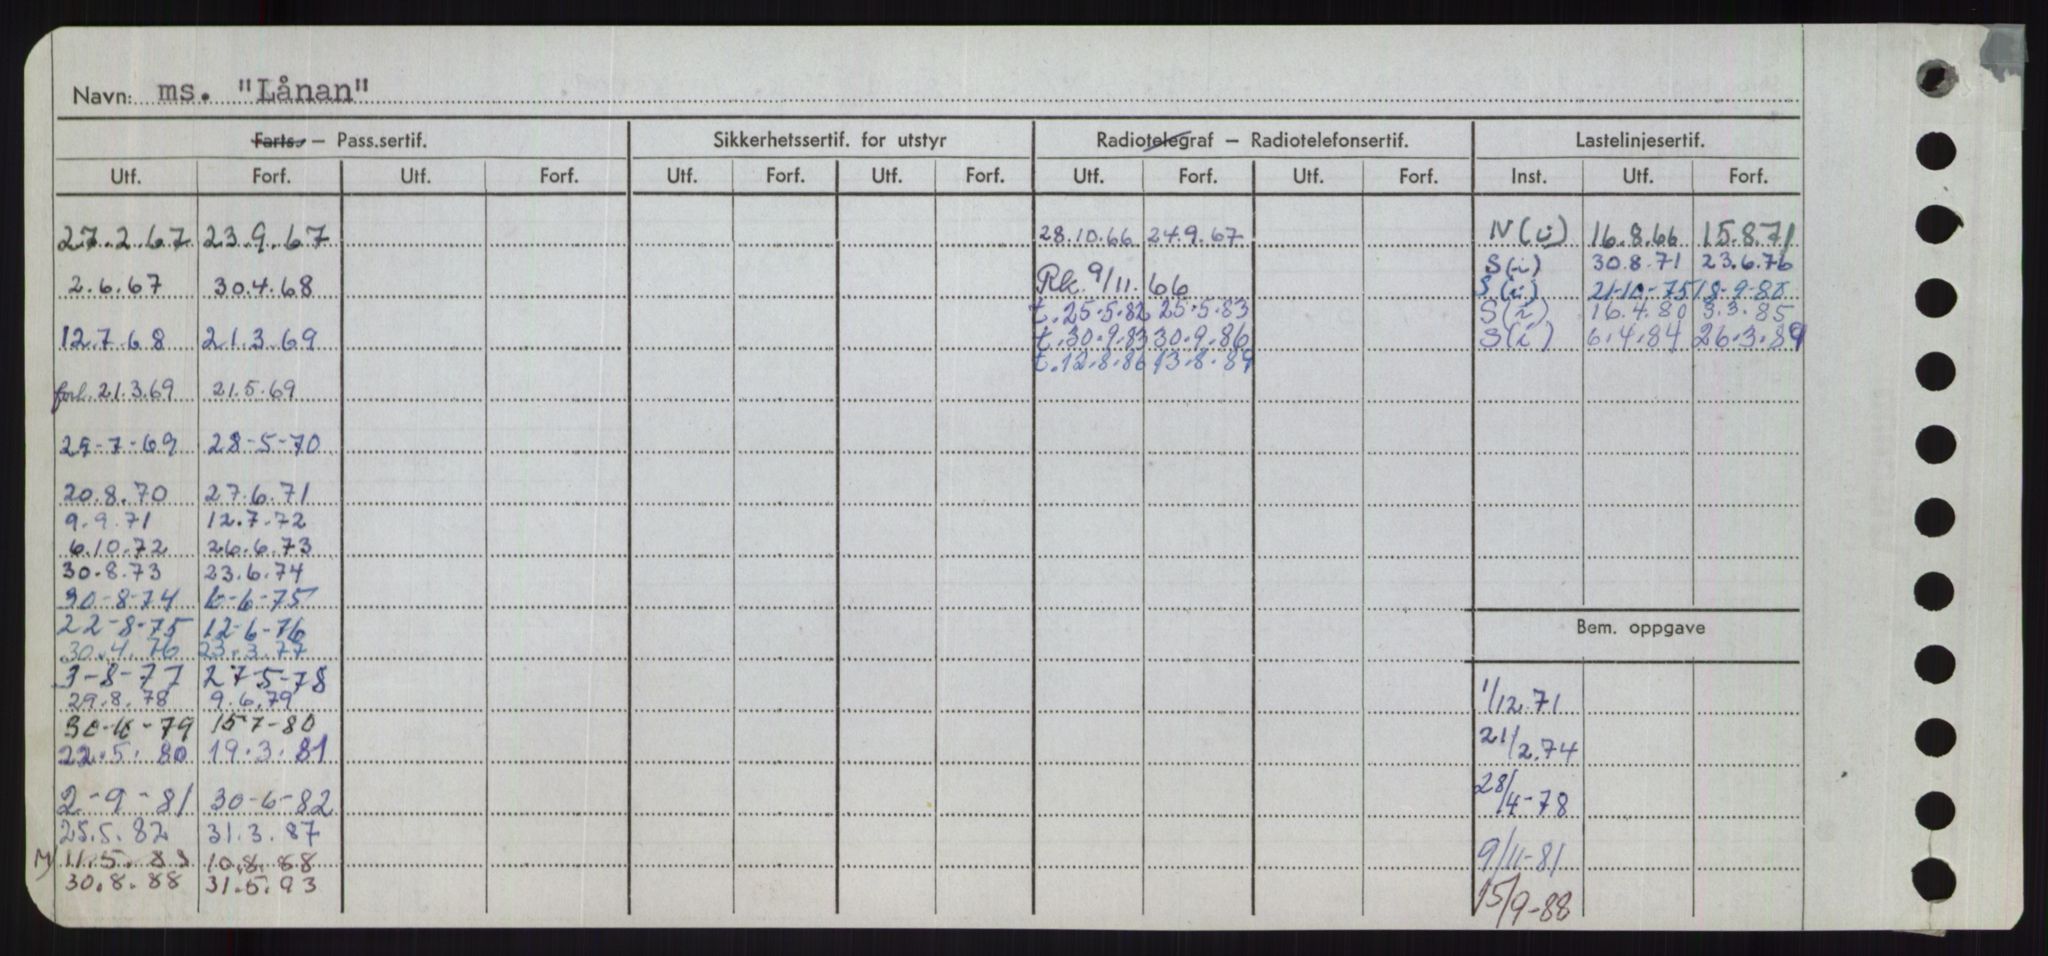 Navn: ms. "Lånan"
Farts. — Pass.sertif. Sikkerhetssertif. for utstyr Radiotelegraf — Radiotelefonsertif. Lastelinjesertif.
Utf. Forf. Utf. Forf. Utf. Forf. Utf. Forf. Utf. Forf. Utf. Forf. Inst. Utf. Forf.
27.2.67 23.9.67
2.6.67 30.4.68
12.7.68 21.3.69
forl. 21.3.69 21.5.69
29-7-69 28-5-70
20.8.70 27.6.71
9.9.71 12.7.72
6.10.72 26.6.73
30.8.73 23.6.74
30-8-74 6-6-75
22-8-75 12-6-76
30.4.76 23.3.77
3-8-77 27-5-78
29.8.78 9.6.79
15-7-80
22.5.80 19.3.81
2-9-81 30-6-82
25.5.82 31.3.87
11.5.83 10.8.88
30.8.88 31.5.93
28.10.66 24.9.67
9/11.66
t.25.5.82 25.5.83
t.30.9.83 30.9.86
t.12.8.86 13.8.89
N(i) 16.8.66 15.8.71
S(i) 30.8.71 23.6.76
S(i) 21-10-75 18-9-80
S(i) 16.4.80 3.3.85
S(i) 6.4.84 26.3.89
Bem. oppgave
1/12.71
21/2.74
28/4-78
9/11-81
15/9-88